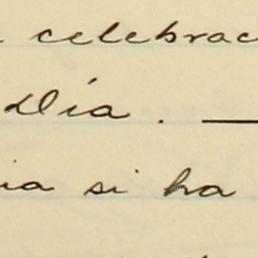 celebrac
Día. —
ia si ha